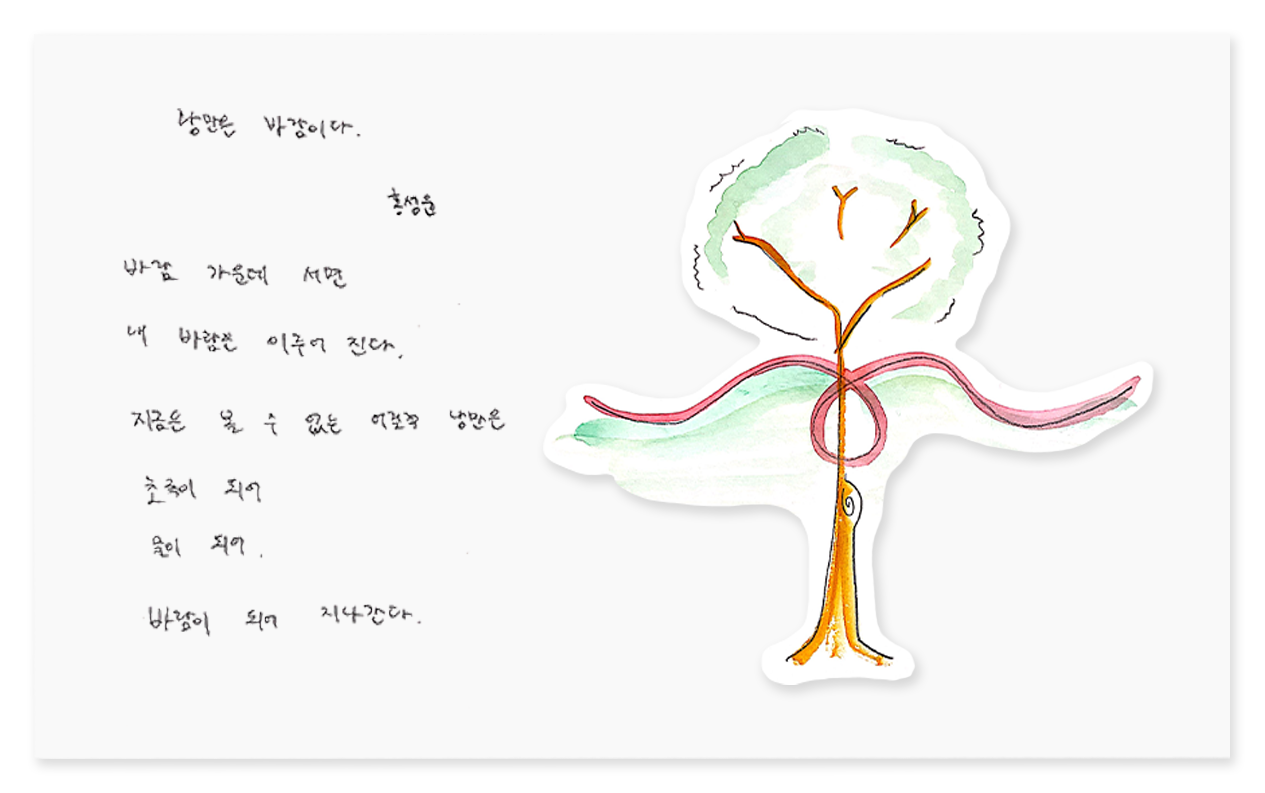 낭만은 바람이다.
바람 가운데 서면
내 바람은 이루어 진다.
지금은 볼 수 없는 어릴적 낭만은
초록이 되어
되어.
바람이 되어 지나간다.